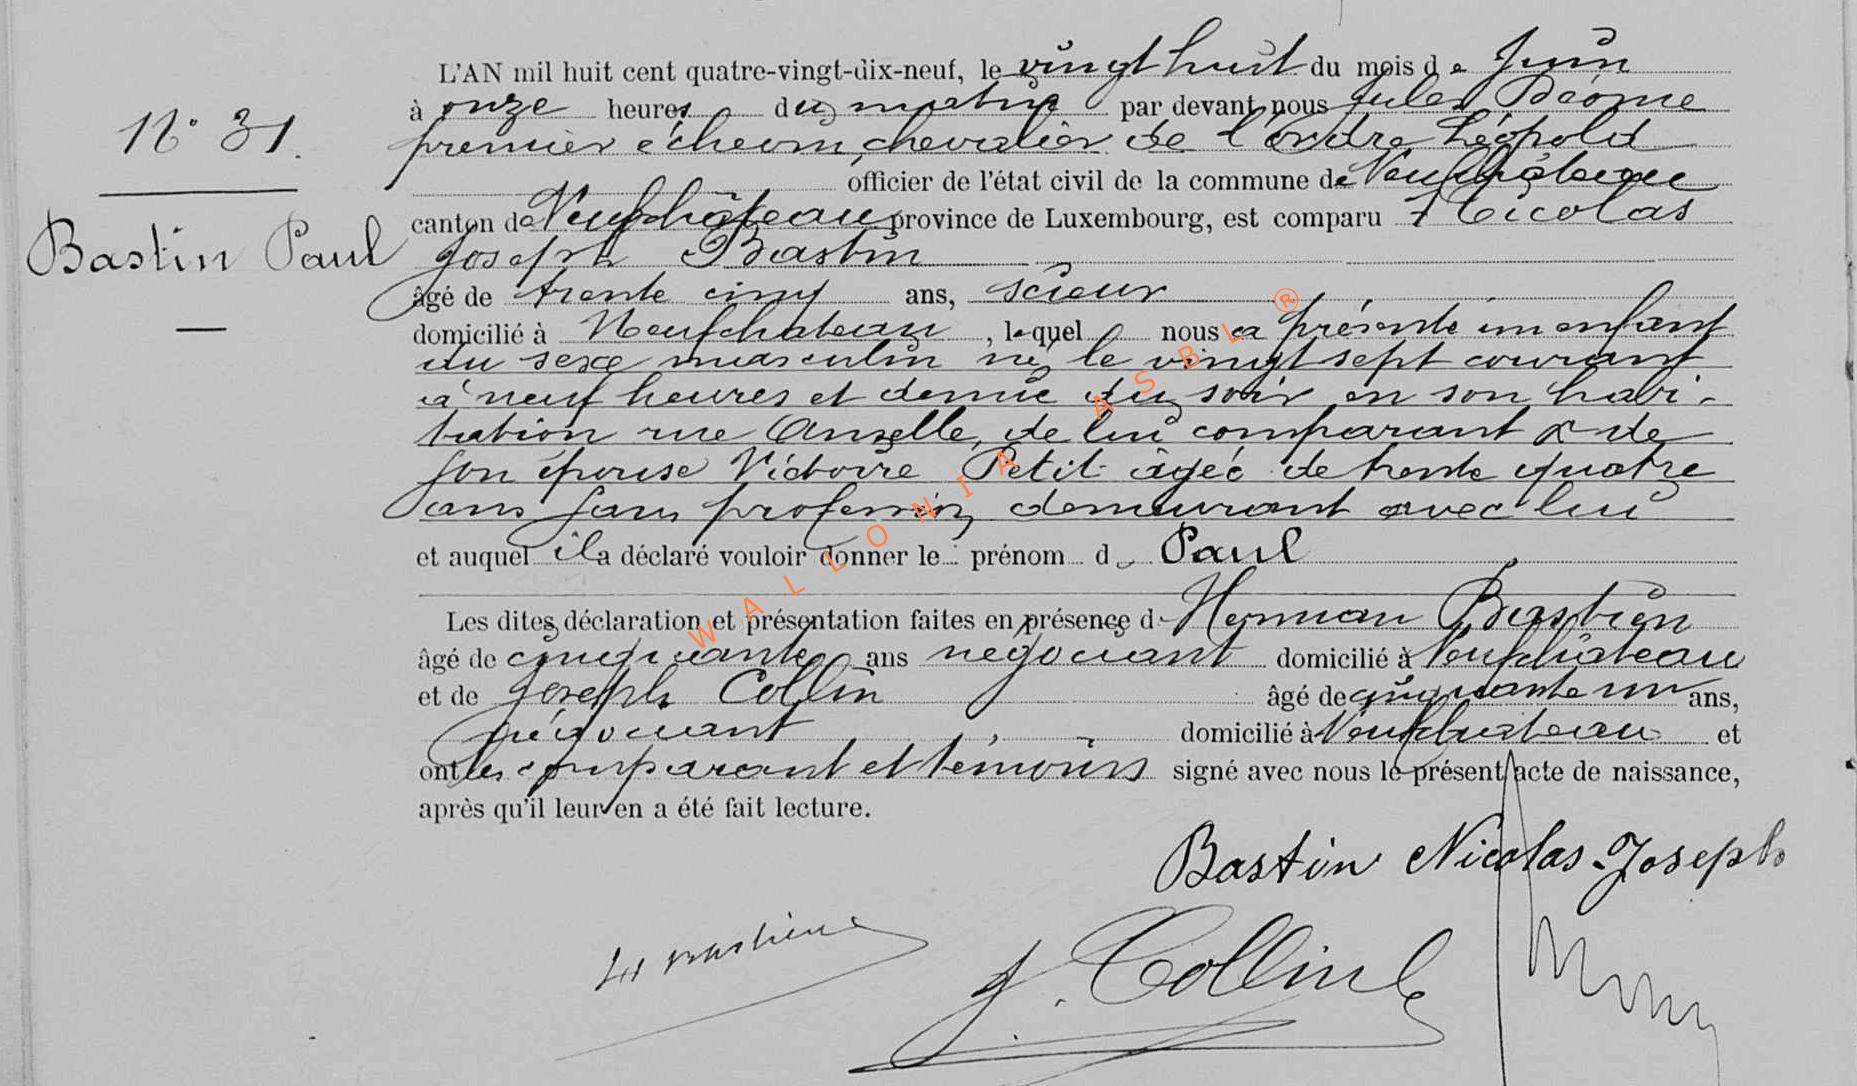 N° 31.
Bastin Paul
L'AN mil huit cent quatre-vingt-dix-neuf, le vingt huit du mois de Juin
à onze heures du matin par devant nous Jules
premier échevin, chevalier de l'ordre Léopold
officier de l'état civil de la commune de Neufchâteau
canton de Neufchâteau province de Luxembourg, est comparu Nicolas
Joseph Bastin
âgé de trente cinq ans, scieur
domicilié à Neufchateau, lequel nous a présenté un enfant
du sexe masculin né le vingt sept courant
à neuf heures et demie du soir en son habi-
tation rue Anselle, de lui comparant & de
son épouse Victoire Petit âgée de trente quatre
ans sans profession demeurant avec lui
et auquel il a déclaré vouloir donner le prénom de Paul
Les dites déclaration et présentation faites en présence de Herman Bastien
âgé de cinquante ans négociant domicilié à Neufchâteau
et de Joseph Collin âgé de cinquante un ans,
négociant domicilié à Neufchateau et
ont les comparant et témoins signé avec nous le présent acte de naissance,
après qu'il leur en a été fait lecture.
Bastin Nicolas-Joseph
H Bastien
J. Collin
WALLONIA ASBL ®